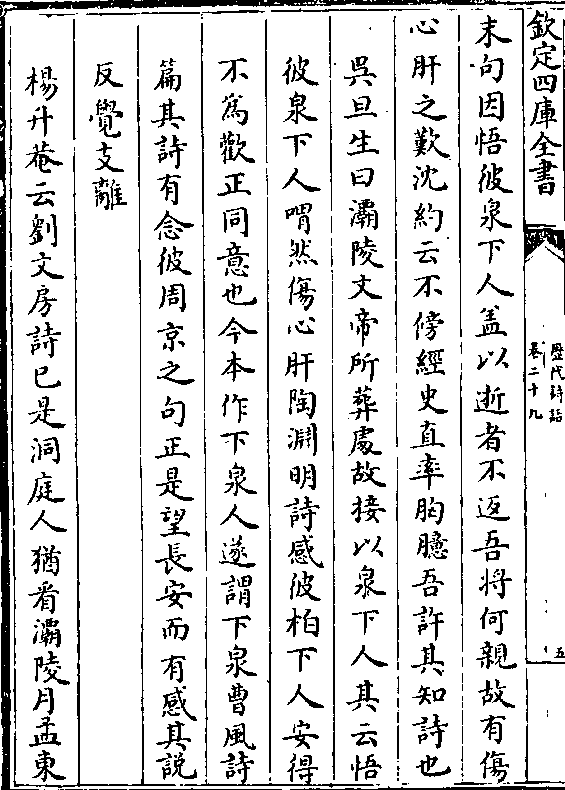 欽定四庫全書
歷代詩話
卷二十九
五
末句因悟彼泉下人盖以逝者不返吾将何親故有傷
心肝之歎沈約云不傍經史直率胸臆吾許其知詩也
吳旦生曰灞陵文帝所葬處故接以泉下人其云悟
彼泉下人喟然傷心肝陶淵明詩感彼柏下人安得
不為歡正同意也今本作下泉人遂謂下泉曹風詩
篇其詩有念彼周京之句正是望長安而有感其説
反覺支離
楊升菴云劉文房詩已是洞庭人猶看灞陵月孟東